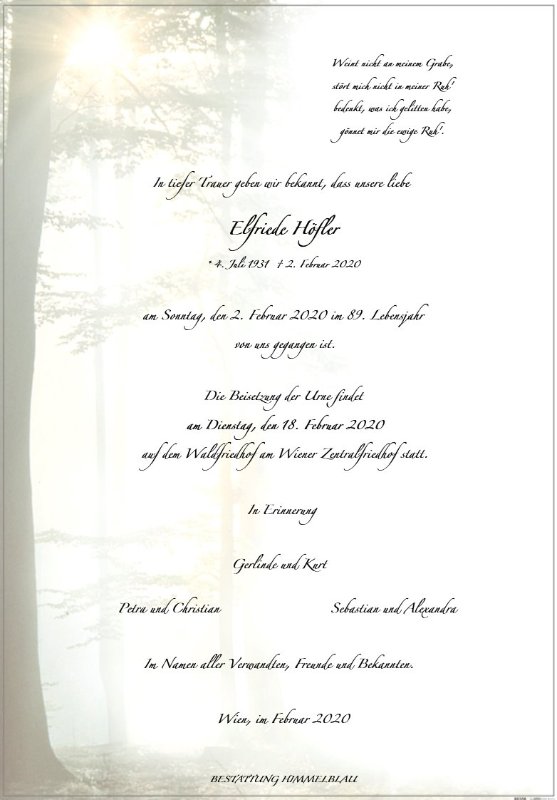 Weint nicht an meinem Grabe,
stört mich nicht in meiner Ruh'
bedenkt, was ich gelitten habe,
gönnet mir die ewige Ruh'.
In tiefer Trauer geben wir bekannt, dass unsere liebe
Elfriede Höfler
* 4. Juli 1931 † 2. Februar 2020
am Sonntag, den 2. Februar 2020 im 89. Lebensjahr
von uns gegangen ist.
Die Beisetzung der Urne findet
am Dienstag, den 18. Februar 2020
auf dem Waldfriedhof am Wiener Zentralfriedhof statt.
In Erinnerung
Gerlinde und Kurt
Petra und Christian
Sebastian und Alexandra
Im Namen aller Verwandten, Freunde und Bekannten.
Wien, im Februar 2020
BESTATTUNG HIMMELBLAU